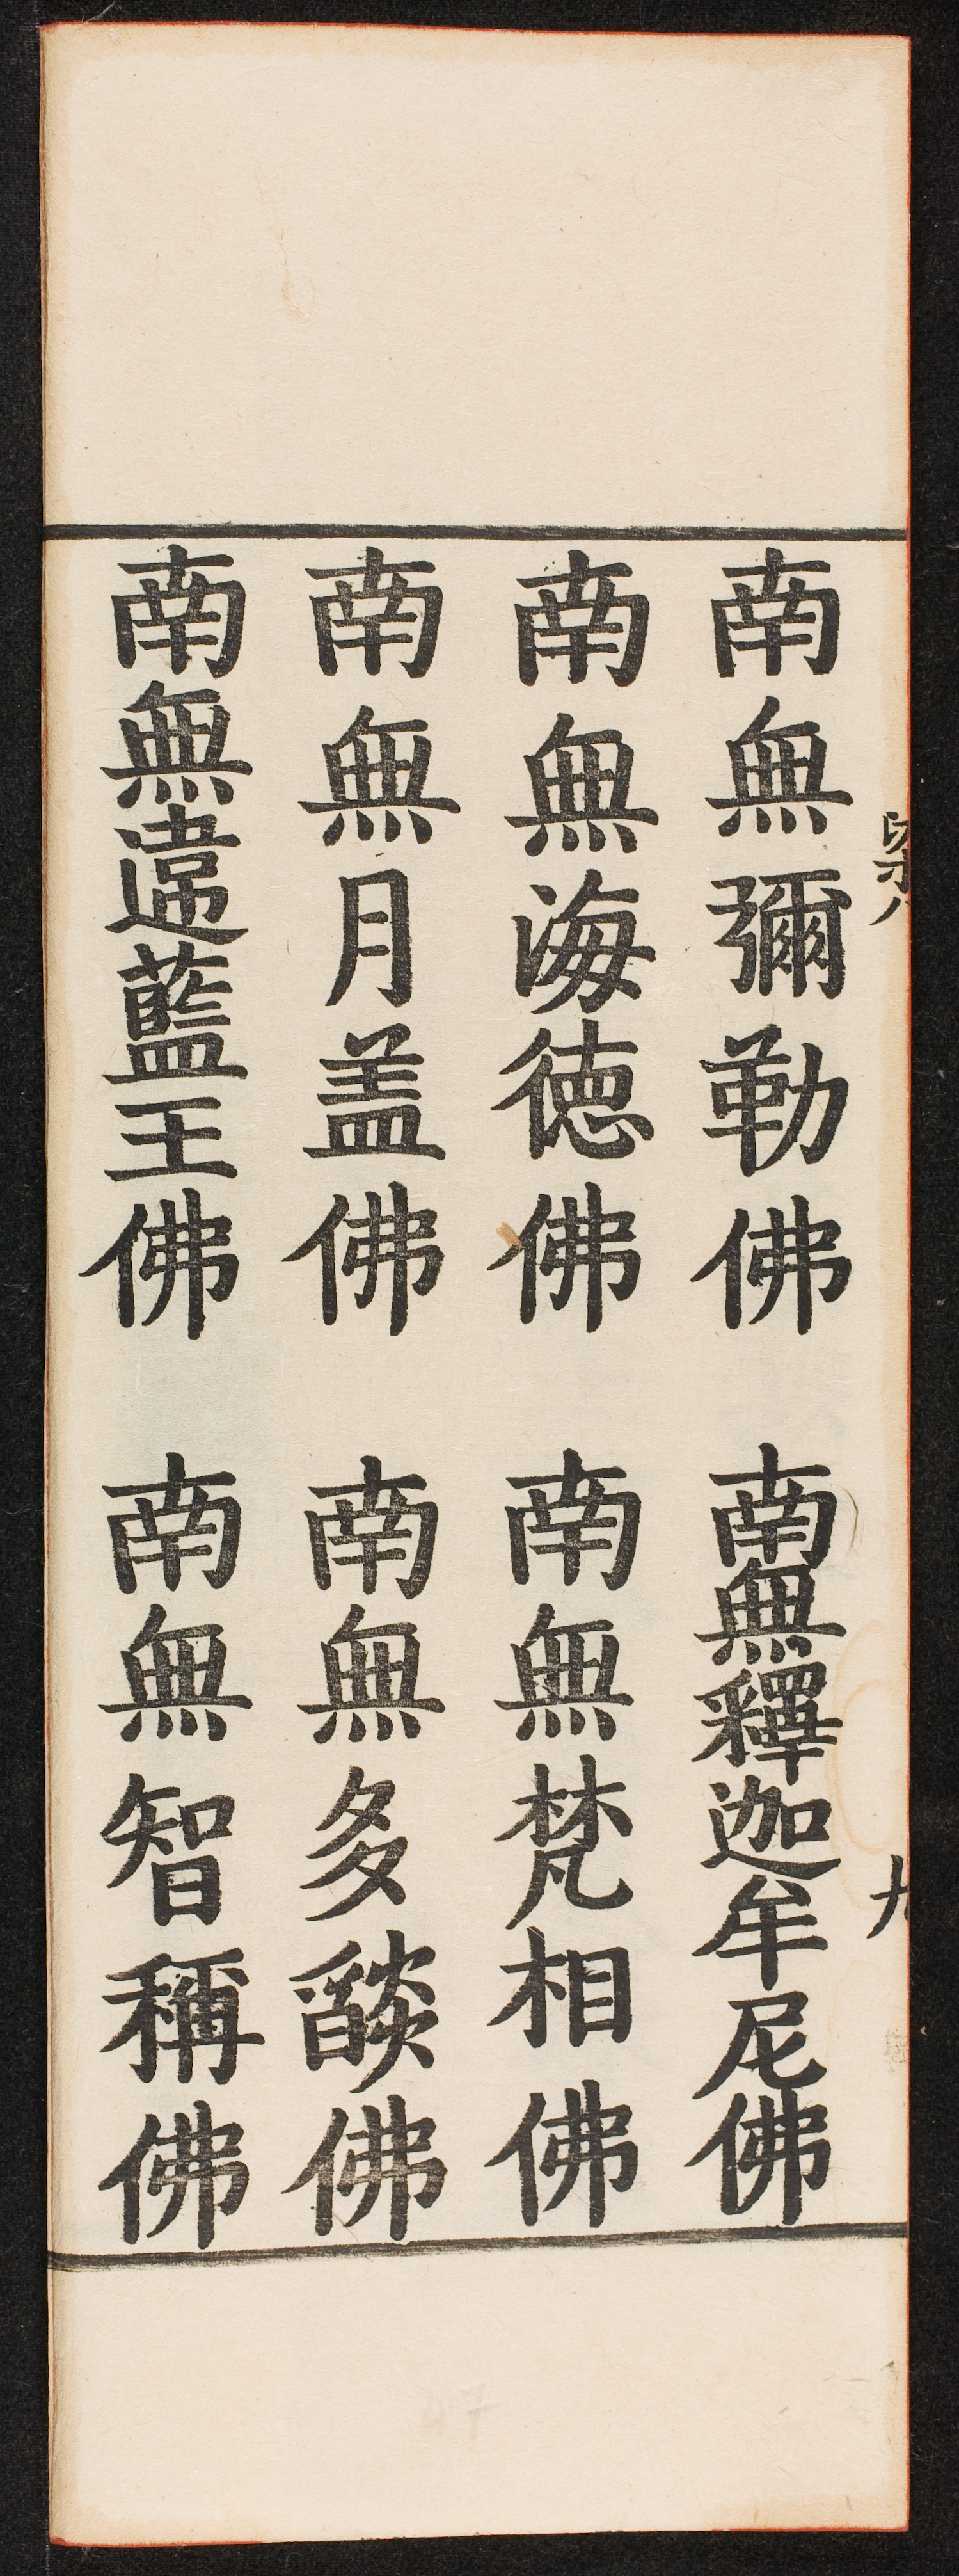 南無彌勒佛 南無釋迦牟尼佛
南無海德佛 南無梵相佛
南無月盖佛 南無多燄佛
南無違藍王佛 南無智稱佛